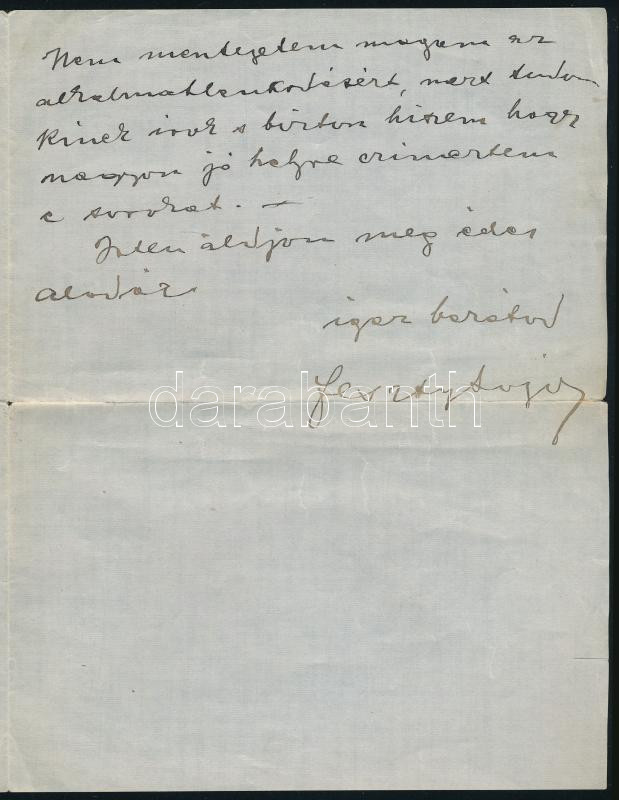 Nem mentegetem magam az
alkalmatlankodásért, mert tudom
kinek irok s bizton hiszem hogy
nagyon jó helyre czimeztem
e sorokat. —
Isten áldjon meg édes
Aladár.
igaz barátod
Feszty
darabanth